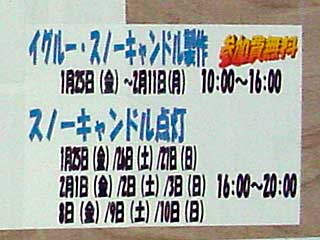 イグルー・スノーキャンドル製作 参加費無料
1月25日(金)～2月11日(月) 10:00～16:00
スノーキャンドル点灯
1月25日(金)/26日(土)/27日(日)
2月1日(金)/2日(土)/3日(日) 16:00～20:00
8日(金)/9日(土)/10日(日)